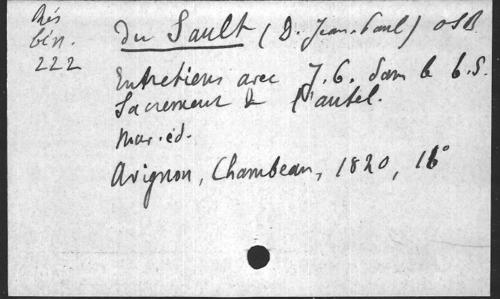 Rés
bén.
222
du Sault (D. Jean-Paul) OSB
Entretiens avec J.C. dans le S.S.
Sacrement de l'autel.
Nov. éd.
Avignon, Chambeau, 1820, 16°